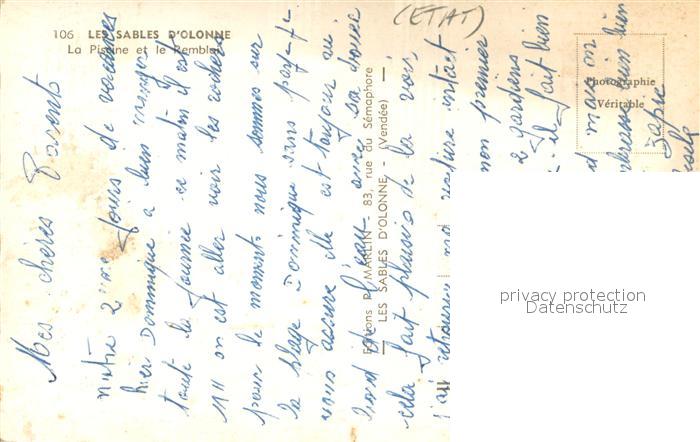 106 LES SABLES D'OLONNE
La Piscine et le Remblai
(ETAT)
Photographie
Véritable
Editions P. MARLIN - 83, rue du Sémaphore
— LES SABLES D'OLONNE - (Vendée) —
Mes chères Parents
Notre 2ème jours de vacances
hier Dominique a bien manger
toute la journée ce matin il est
11H on est aller voir les rochers
pour le moments nous sommes sur
la plage Dominique sans
vous assure elle est toujours
bord de l'eau avec sa
cela fait plaisir de la voir,
j'ai retrouver ma voiture intact
mon premier
2 gardiens
il fait bien
mais on
bien
privacy protection
Datenschutz